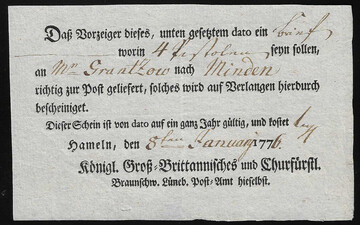 Daß Vorzeiger dieses, unten gesetztem dato ein brief
worin 4 Pistolen seyn sollen,
an Mr Grantzow nach Minden
richtig zur Post geliefert, solches wird auf Verlangen hierdurch
bescheiniget.
Dieser Schein ist von dato auf ein ganz Jahr gültig, und kostet
Hameln, den 8ten Januarij 1776
Königl. Groß-Brittannisches und Churfürstl.
Braunschw. Lüneb. Post-Amt hieselbst.